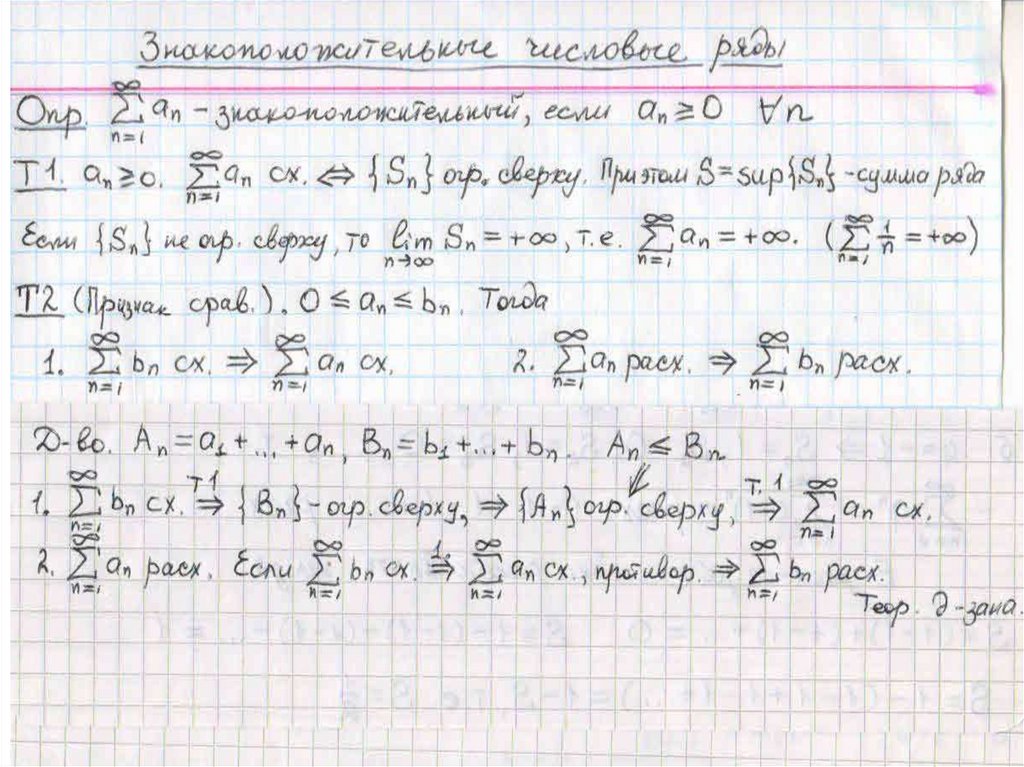 Знакоположительные числовые ряды
Опр. ∑_{n=1}^{∞} aₙ - знакоположительный, если aₙ ≥ 0 ∀n
Т1. aₙ ≥ 0. ∑_{n=1}^{∞} aₙ сх. ⇔ {Sₙ} огр. сверху. При этом S = sup{Sₙ} - сумма ряда
Если {Sₙ} не огр. сверху, то lim_{n→∞} Sₙ = +∞, т.е. ∑_{n=1}^{∞} aₙ = +∞. (∑_{n=1}^{∞} 1/n = +∞)
Т2 (Признак срав.). 0 ≤ aₙ ≤ bₙ. Тогда
1. ∑_{n=1}^{∞} bₙ сх. ⇒ ∑_{n=1}^{∞} aₙ сх. 2. ∑_{n=1}^{∞} aₙ расх. ⇒ ∑_{n=1}^{∞} bₙ расх.
Д-во. Aₙ = a₁ + ... + aₙ, Bₙ = b₁ + ... + bₙ. Aₙ ≤ Bₙ
1. ∑_{n=1}^{∞} bₙ сх. ⇒^{Т1} {Bₙ} - огр. сверху, ⇒ {Aₙ} огр. сверху, ⇒^{Т.1} ∑_{n=1}^{∞} aₙ сх.
2. ∑_{n=1}^{∞} aₙ расх. Если ∑_{n=1}^{∞} bₙ сх. ⇒^{1.} ∑_{n=1}^{∞} aₙ сх., противор. ⇒ ∑_{n=1}^{∞} bₙ расх.
Теор. д-зана.